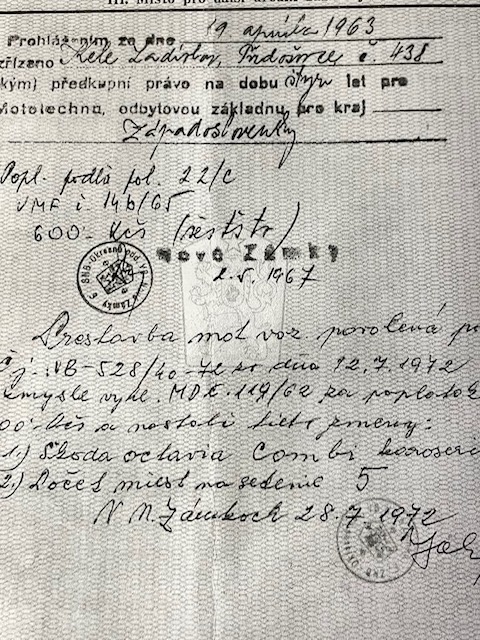 III. Místo pro další úřední
Prohlášením ze dne 19 apríla 1963
zřízeno Kele Ladislav, Tvrdošovce č. 438
kým) předkupní právo na dobu štyri let pro
Mototechna, odbytovou základnu, pro kraj
Západoslovenský
Popl. podľa pol. 22/c
VMF č 146/65
600- Kčs (šeststo)
Nové Zámky
2.5. 1967
Prestavba mot voz. povolená po
Čj. VB-528/40-72 zo dňa 12.7.1972
zmysle vyhl. MDč. 119/62 za poplatok
00-Kčs a nastali tieto zmeny:
1.) Škoda octavia Combi karoseri
2.) Počet miest na sedenie 5
V N. Zámkoch 28.7 1972